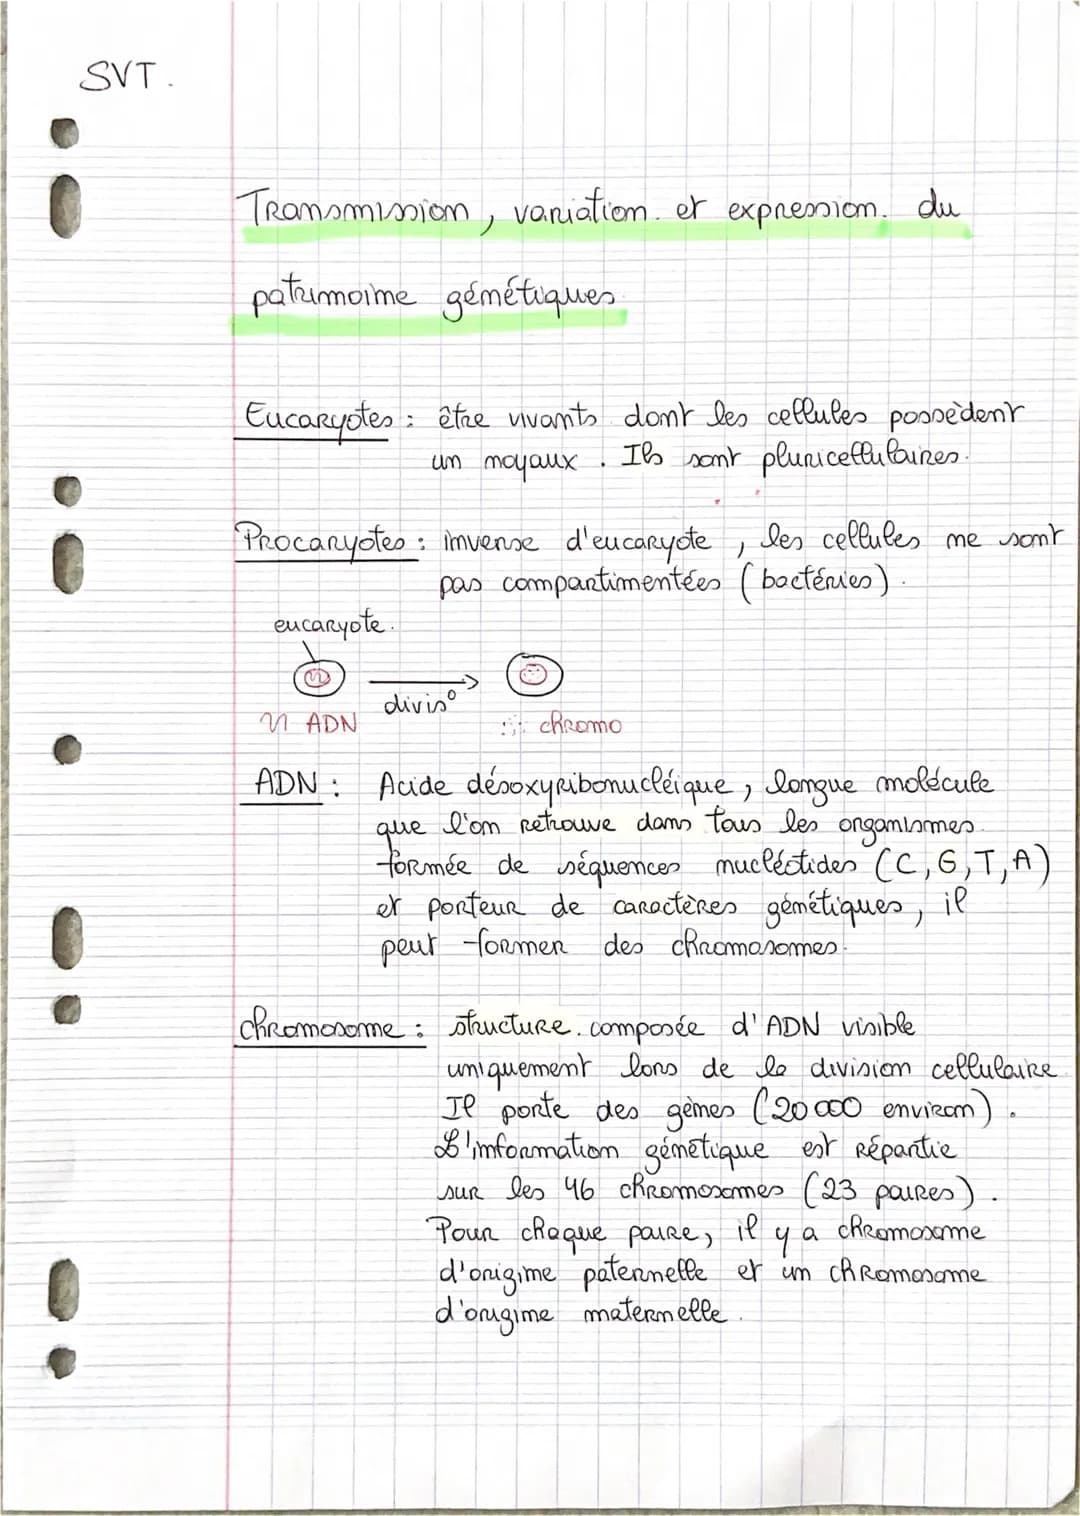 SVT.
Transmission, variation. et expression. du
patrimoine génétiques.
Eucaryotes : être vivants dont les cellules possèdent
un noyaux. Ils sont pluricellulaires.
Procaryotes : inverse d'eucaryote, les cellules ne sont
pas compartimentées (bactéries).
eucaryote.
divis°
ADN
:: chromo
ADN : Acide désoxyribonucléique, longue molécule
que l'on retrouve dans tous les organismes.
formée de séquences nucléotides (C, G, T, A)
et porteur de caractères génétiques, il
peut former des chromosomes.
chromosome : structure. composée d'ADN visible
uniquement lors de la division cellulaire.
Il porte des gènes (20 000 environ).
L'information génétique est répartie
sur les 46 chromosomes (23 paires).
Pour chaque paire, il y a chromosome
d'origine paternelle et un chromosome
d'origine maternelle.